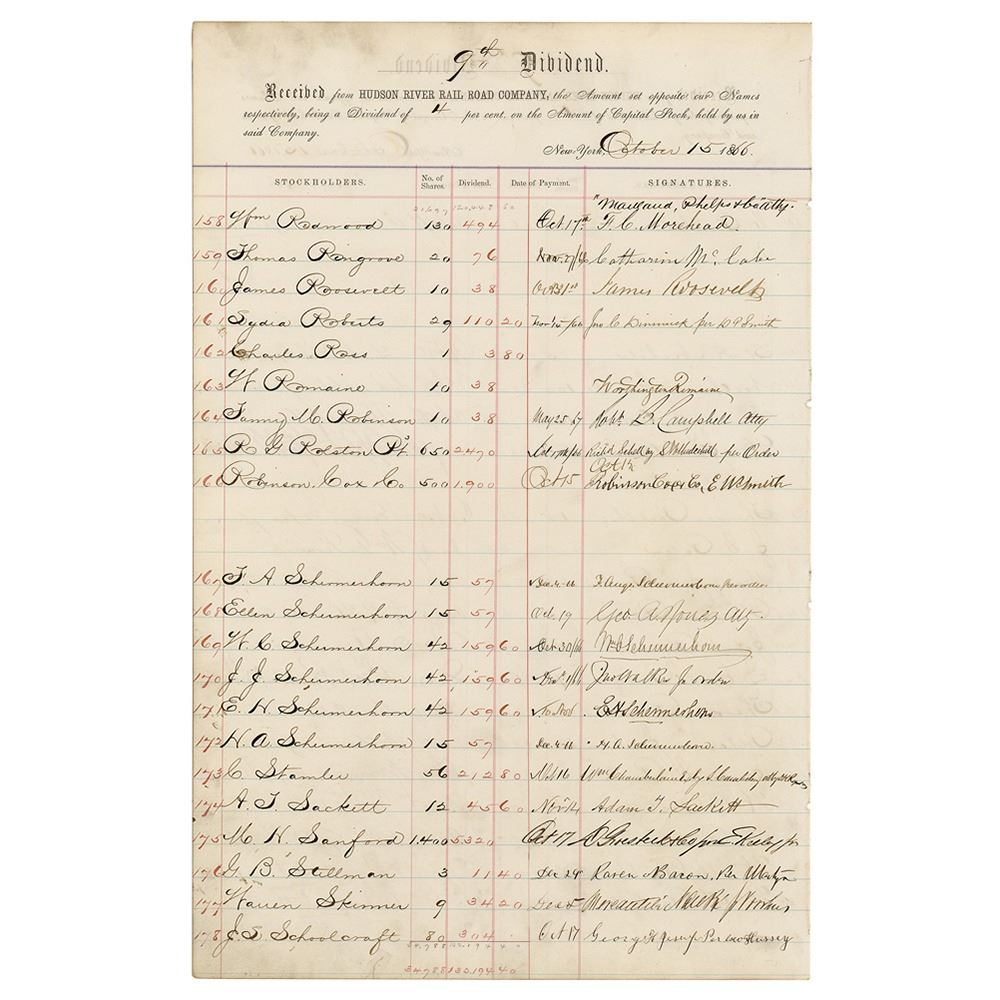 9th Dividend.
Received from HUDSON RIVER RAIL ROAD COMPANY, the Amount set opposite our Names
respectively, being a Dividend of 4 per cent. on the Amount of Capital Stock, held by us in
said Company.
New-York, October 15 1866.
STOCKHOLDERS. No. of Shares. Dividend. Date of Payment. SIGNATURES.
Phelps & Co Atty.
158 Wm Redmood 130 494 Oct. 17th F. C. Morehead.
159 Thomas Ringrove 20 76 Nov. Catharin Mc Cabe
160 James Roosevelt 10 38 Oct 31st James Roosevelt
161 Lydia Roberts 29 110 20 Nov 15/66 Jno C Dimmick per D P Smith
162 Charles Ross 1 3 80
163 W Romaine 10 38 Worthington Romaine
164 Fanny M. Robinson 10 38 May 25 67 Robt. B. Campbell Atty
165 R G Rolston Pt. 650 2470 per Order
Oct 15
166 Robinson, Cox & Co 500 1.900 Oct 15 Robinson Cox & Co, E W Smith
167 F. A Schermerhorn 15 57 Dec. 4-66 F. Augs. Schermerhorn
168 Ellen Schermerhorn 15 57 Oct. 19 Geo A. Jones Atty.
169 W. C Schermerhorn 42 159 60 Oct 30/66 W C Schermerhorn
170 J. J Schermerhorn 42 159 60 Nov 1/66 Jno Walker
171 E. H. Schermerhorn 42 159 60 E H Schermerhorn
172 H. A. Schermerhorn 15 57 Dec. 4-66 H. A. Schermerhorn.
173 C. Stamler 56 212 80 Oct 16 Wm Chamberlain
174 A. T. Sackett 12 45 60 Nov 12 Adam T. Sackett
175 M. H. Sanford 1.400 5320 Oct 17
176 G. B. Stillman 3 11 40 Dec 24 Raven & Bacon, Per Martyn
177 Warren Skinner 9 34 20 Dec 5 Mercantile
178 J. L Schoolcraft 80 304 Oct 17 George
34.988 132.194 40
34.988 132.194 40